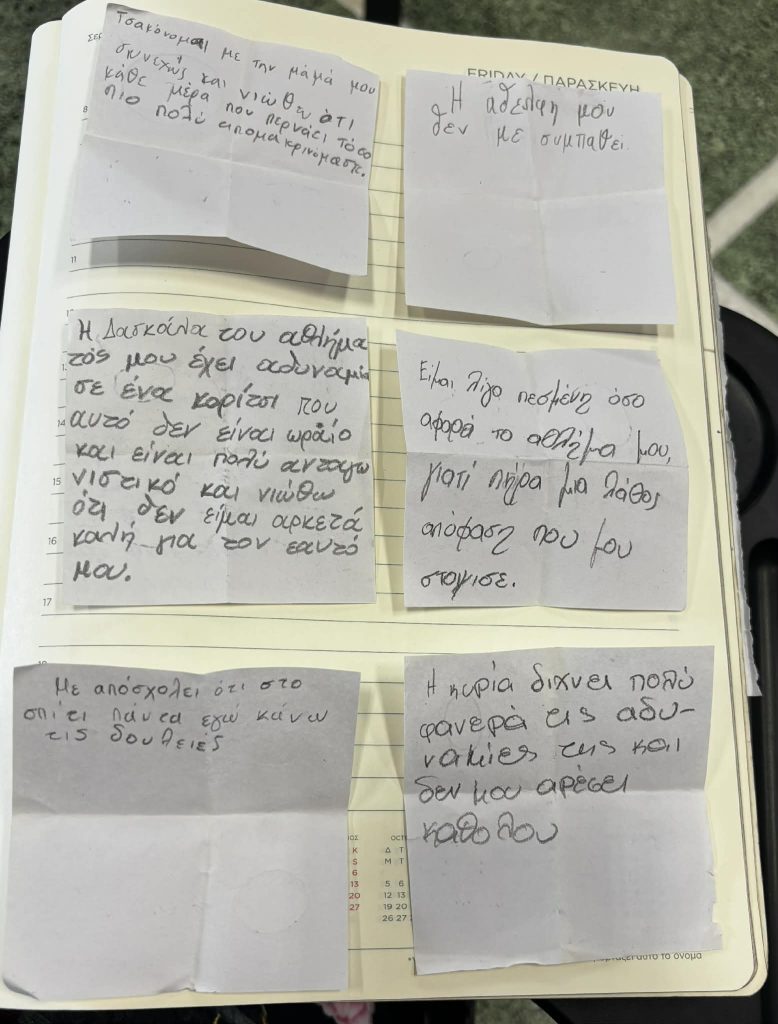 ΣΕΠ
FRIDAY / ΠΑΡΑΣΚΕΥΗ
Τσακόνομαι με την μάμά μου
συνεχώς και νιώθω ότι
κάθε μέρα που περνάει τόσο
πιο πολύ απομακρινόμαστε.
Η αδελφη μου
δεν με συμπαθεί.
8
11
Η Δασκάλα του αθλήμα
τός μου έχει αδυναμία
σε ένα κορίτσι που
αυτό δεν είναι ωραίο
και είναι πολύ ανταγω
νιστικό και νιώθω
ότι δεν είμαι αρκετά
καλή για τον εαυτό
μου.
14
15
16
17
Είμαι λίγο πεσμένη όσο
αφορά το αθλήμα μου,
γιατί πήρα μια λάθος
απόφαση που μου
στοίχισε.
Με απόσχολεί ότι στο
σπίτι πάντα εγώ κάνω
τις δουλειές
Η κυρία διχνει πολύ
φανερά τις αδυ-
ναμίες της και
δεν μου αρέσει
καθολου
ΟΣ
Κ
S
6
13
20
27
ΟΚΤ
Δ Τ
M T
5 6
12 13
19 20
26 27
αυτό το όνομα